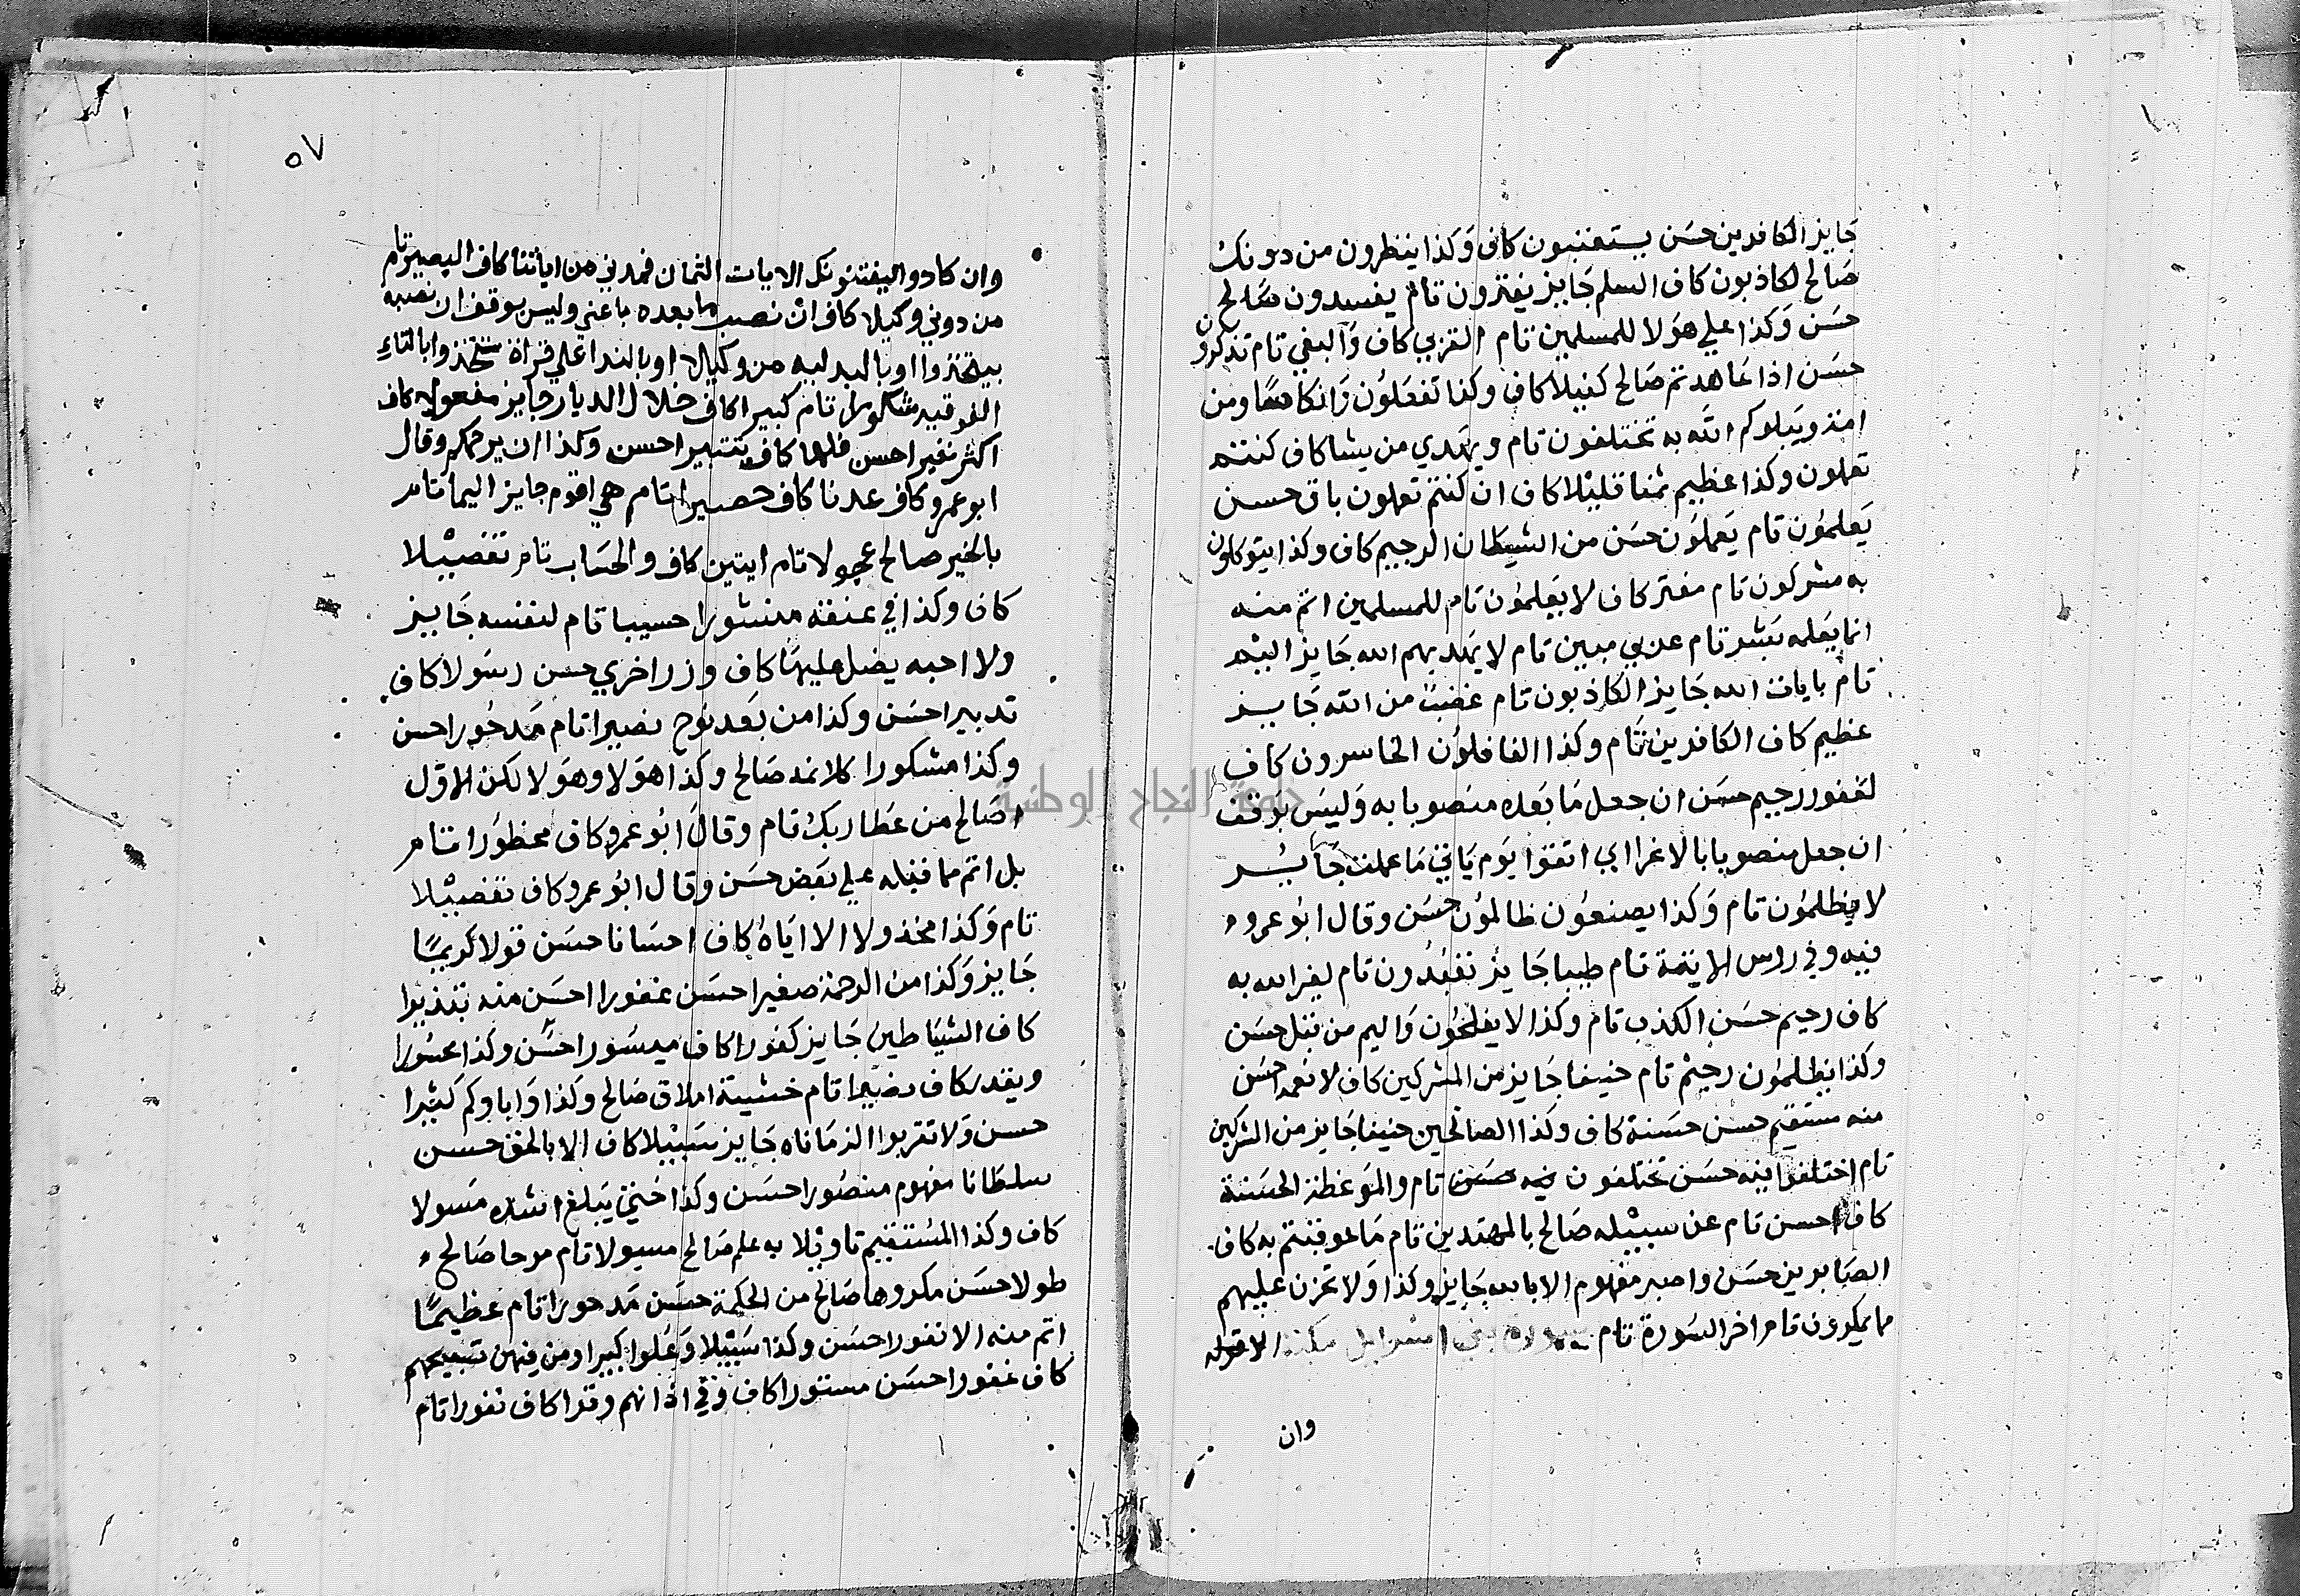 جَايز الكافرين حسَن يستعتبون كاف وَكذا ينظرون من دونك
صَالح لكاذبون كاف السلم جَايز يفترون تام يفسدون صَالح
حسَن وَكذا علي هؤلا للمسلمين تام القربي كاف وَالبغي تام تذكرون
حسَن اذا عَاهدتم صَالح كفيلا كاف وكذا تفعَلوُن وَانكاثا ومن
امة ويَبلوكم الله به تختلفون تام ويهدي من يشا كاف كنتم
تعلون وكذا عظيم ثمنا قليْلا كاف ان كنتم تعلون باق حسن
يَعلموُن تام يَعملوُن حسَن من الشيطان الرجيم كاف وكذا يتوكلون
به مشركون تام مفتر كاف لا يَعلموُن تام للمسلمين اتم منه
انما يَعلمه بَشر تام عربي مبين تام لا يَهديهم الله جَايز اليْم
تام بايات الله جَايز الكاذبون تام غضبٌ من الله جَايز
عظيم كاف الكافرين تَام وكذا الغافلوُن الخاسرون كاف
لغفور رحيم حسَن ان جعل مَا بَعده منصوبا به وَليسَ بوَقف
ان جعل منصوبا بالاغرا اي اتقوا يَوم يَاتي مَا عملت جَايْز
لا يظلموُن تام وَكذا يصنعوُن ظالموُن حسَن وقال ابوُ عمرو
فيه وفي روس الاية تام طيبا جَايز تعبُدون تام لغير الله به
كاف رحيم حسَن الكذب تام وكذا لا يفلحوُن وَاليم من قبل حسَن
وكذا يظلموُن رحيْم تام حنيفا جَايز من المشركين كاف لانعمه حسن
منه مستقيم حسن حسَنة كاف وكذا الصالحين حنيفا جَايز من المشركين
تام اختلفوا فيه حسَن يختلفون فيه حسَن تام والموَعظة الحسَنة
كاف احسن تام عن سبيْله صَالح بالمهتدين تام مَا عوقبتم به كاف
الصَابرين حسَن واصبر مفهوم الا بالله جَايز وكذا وَلا تحزن عليهم
مما يمكرون تام اخر السوُرة تام سورة بني اسرايل مكية الا قوله
وان
٥٧
وان كادوا ليفتنونك الايات الثمان فمدني من اياتنا كاف البصير تام
من دوني وكيلا كاف ان نصب ما بعده باعني وليس بوقف ان نصبه
بيتخذوا او بالبدلية من وكيلا او بالندا علي قراة تتخذوا بالتاءِ
الفوقية شكورا تام كبيرا كاف خلال الديار جَايز مفعولا كاف
اكثر نفيرا حسن فلها كاف تتبيرا حسن وكذا ان يرحمكم وقال
ابو عمرو كاف عدنا كاف حصيرا تام هي اقوم جايز اليما تام
بالخير صالح عجولا تام ايتين كاف والحسَاب تام تفصيْلا
كاف وكذا في عنقه منشورا حسيبا تام لنفسه جَايز
ولا احبه يضل عليهَا كاف وزر اخري حسن رسَولا كاف
تدبيرا حسَن وكذا من بَعد نوُح بصيرا تام مَدحُورا حسن
وكذا مشكورا كلا نمد صَالح وكذا هوَلا وهوَلا لكن الاوَل
اصَالح من عَطا ربك تام وقالَ ابُو عمرو كاف محظوُرا تام
بل اتم مما قبله علي بعَض حسَن وقال ابوُ عمرو كاف تفضيْلا
تام وَكذا مخذولا الا ايَاهُ كاف احسَانا حسَن قولا كريمًا
جَايز وَكذا من الرحمة صغيرا حسَن غفورا احسَن منه تبذيرا
كاف الشيَاطين جَايز كفورا كاف ميسَورا حسَن وكذا محسُورا
ويقدر كاف بصيرا تام خشية املاق صَالح وكذا وَاياوكم كَبيْرا
حسن وَلا تقربوا الزمَا ناه جَايز سَبيْلا كاف الا بالحق حسَن
سلطَانا مفهوم منصُورا حسَن وكذا حَتي يَبلغ اشده مَسولا
كاف وكذا المستقيم تاويْلا به علم صَالح مسيولا تام مرحا صَالح
طولا حسَن مكروها صَالح من الحكمة حسَن مَدحورا تام عظيمًا
اتم منه الا نفورا حسَن وكذا سَبيْلا وَعُلوا كبيرا ومن فيهن تسبيحهم
كاف غفورا حسَن مستورا كاف وَفي اذانهم وقرا كاف نفورا تام
جامعة النجاح الوطنية